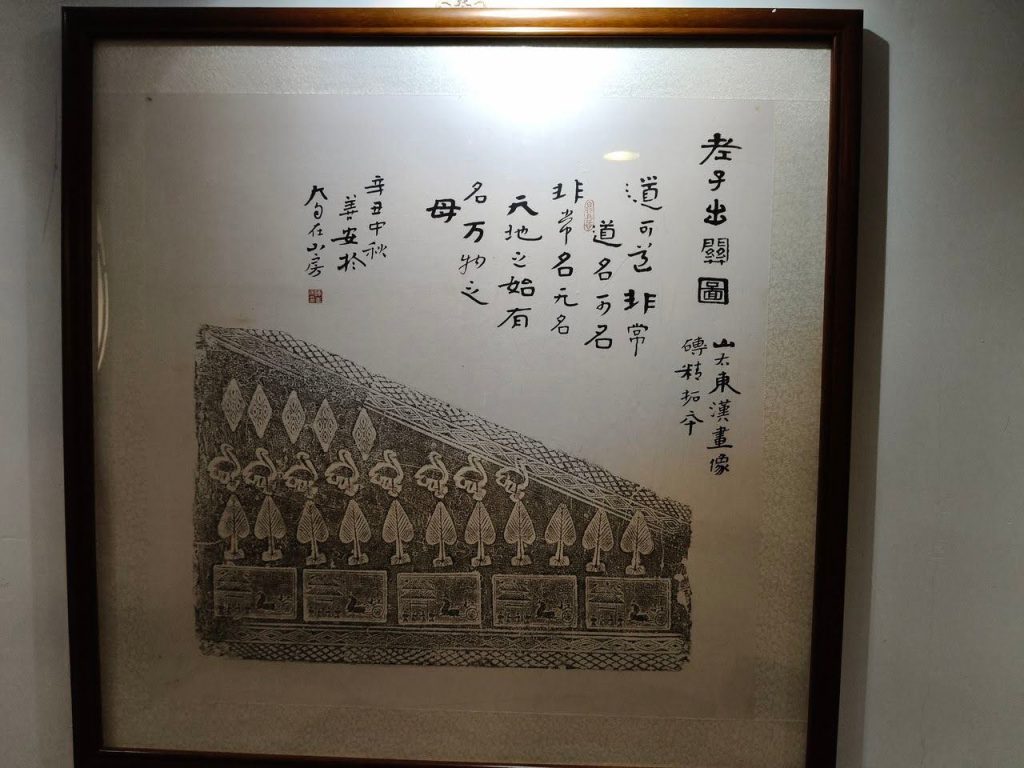 老子出關圖
山左東漢畫像
磚精拓本
道可道非常
道名可名
非常名无名
天地之始有
名万物之
母
辛丑中秋
善安於
大自在山房